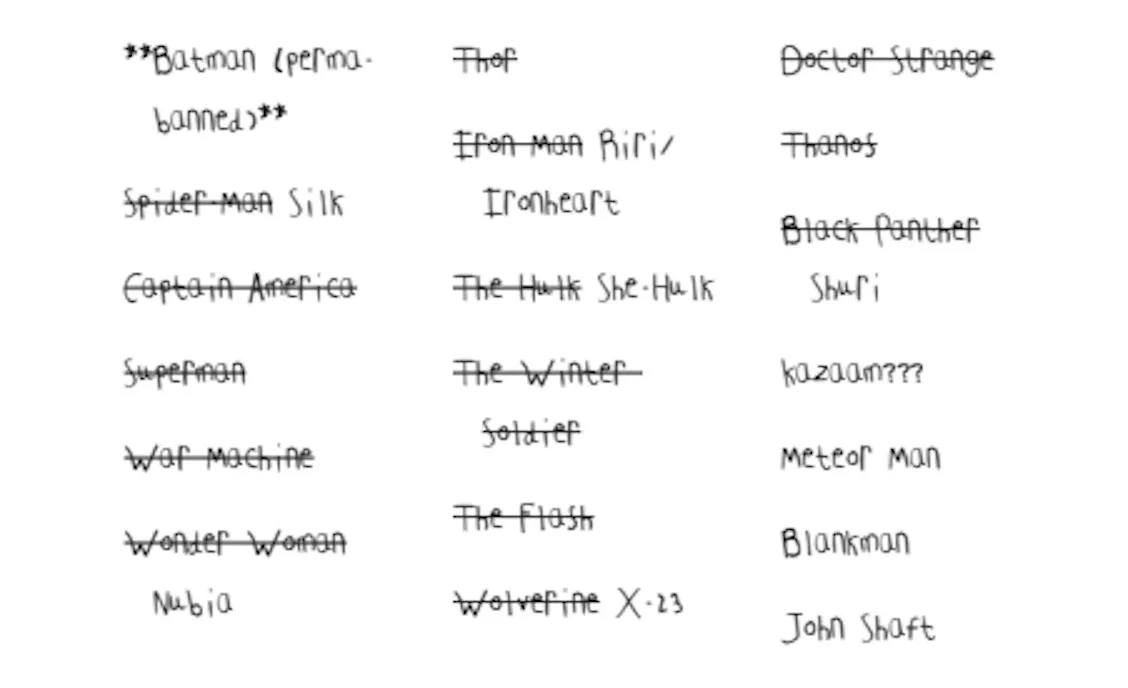 **Batman (perma-
banned)**
Spider-Man Silk
Captain America
Superman
War Machine
Wonder Woman
Nubia
Thor
Iron Man Riri/
Ironheart
The Hulk She-Hulk
The Winter
Soldier
The Flash
Wolverine X-23
Doctor Strange
Thanos
Black Panther
Shuri
kazaam???
Meteor Man
Blankman
John Shaft